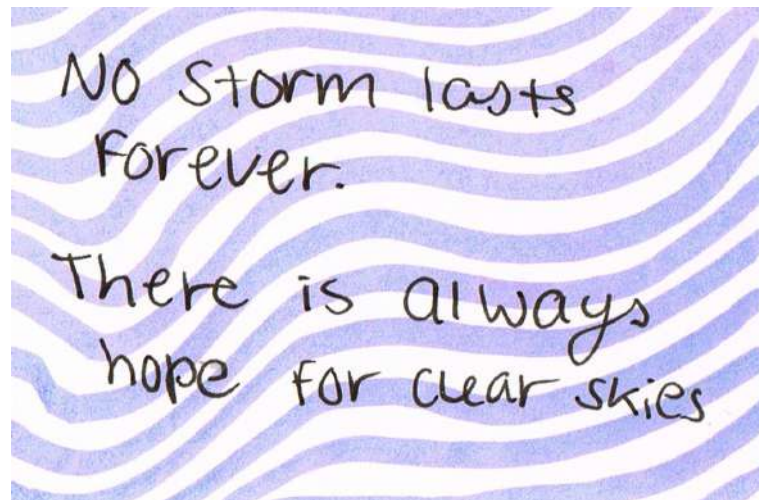 No storm lasts
forever.
There is always
hope for clear skies